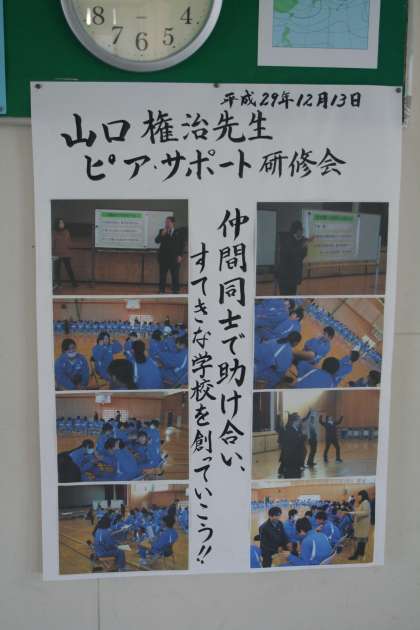 8 7 6 5 4
平成29年12月13日
山口権治先生
ピア・サポート研修会
仲間同士で助け合い、
すてきな学校を創っていこう!!